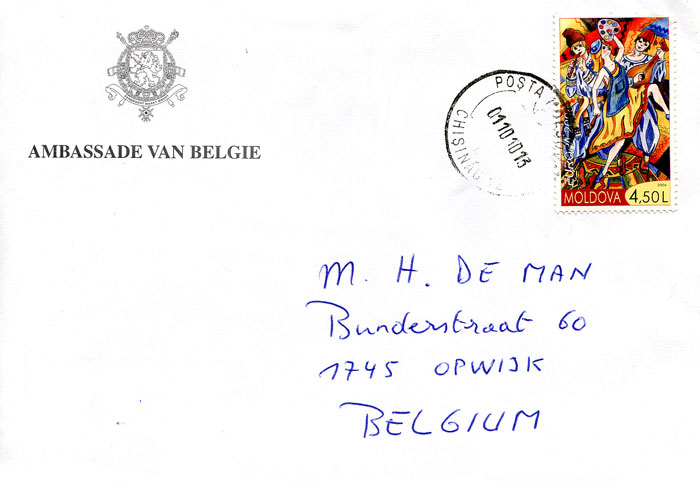 AMBASSADE VAN BELGIE
POSTA
CHISINAU
011010 13
EUROPA
2004
MOLDOVA 4,50L
M. H. DE MAN
Bunderstraat 60
1745 OPWIJK
BELGIUM